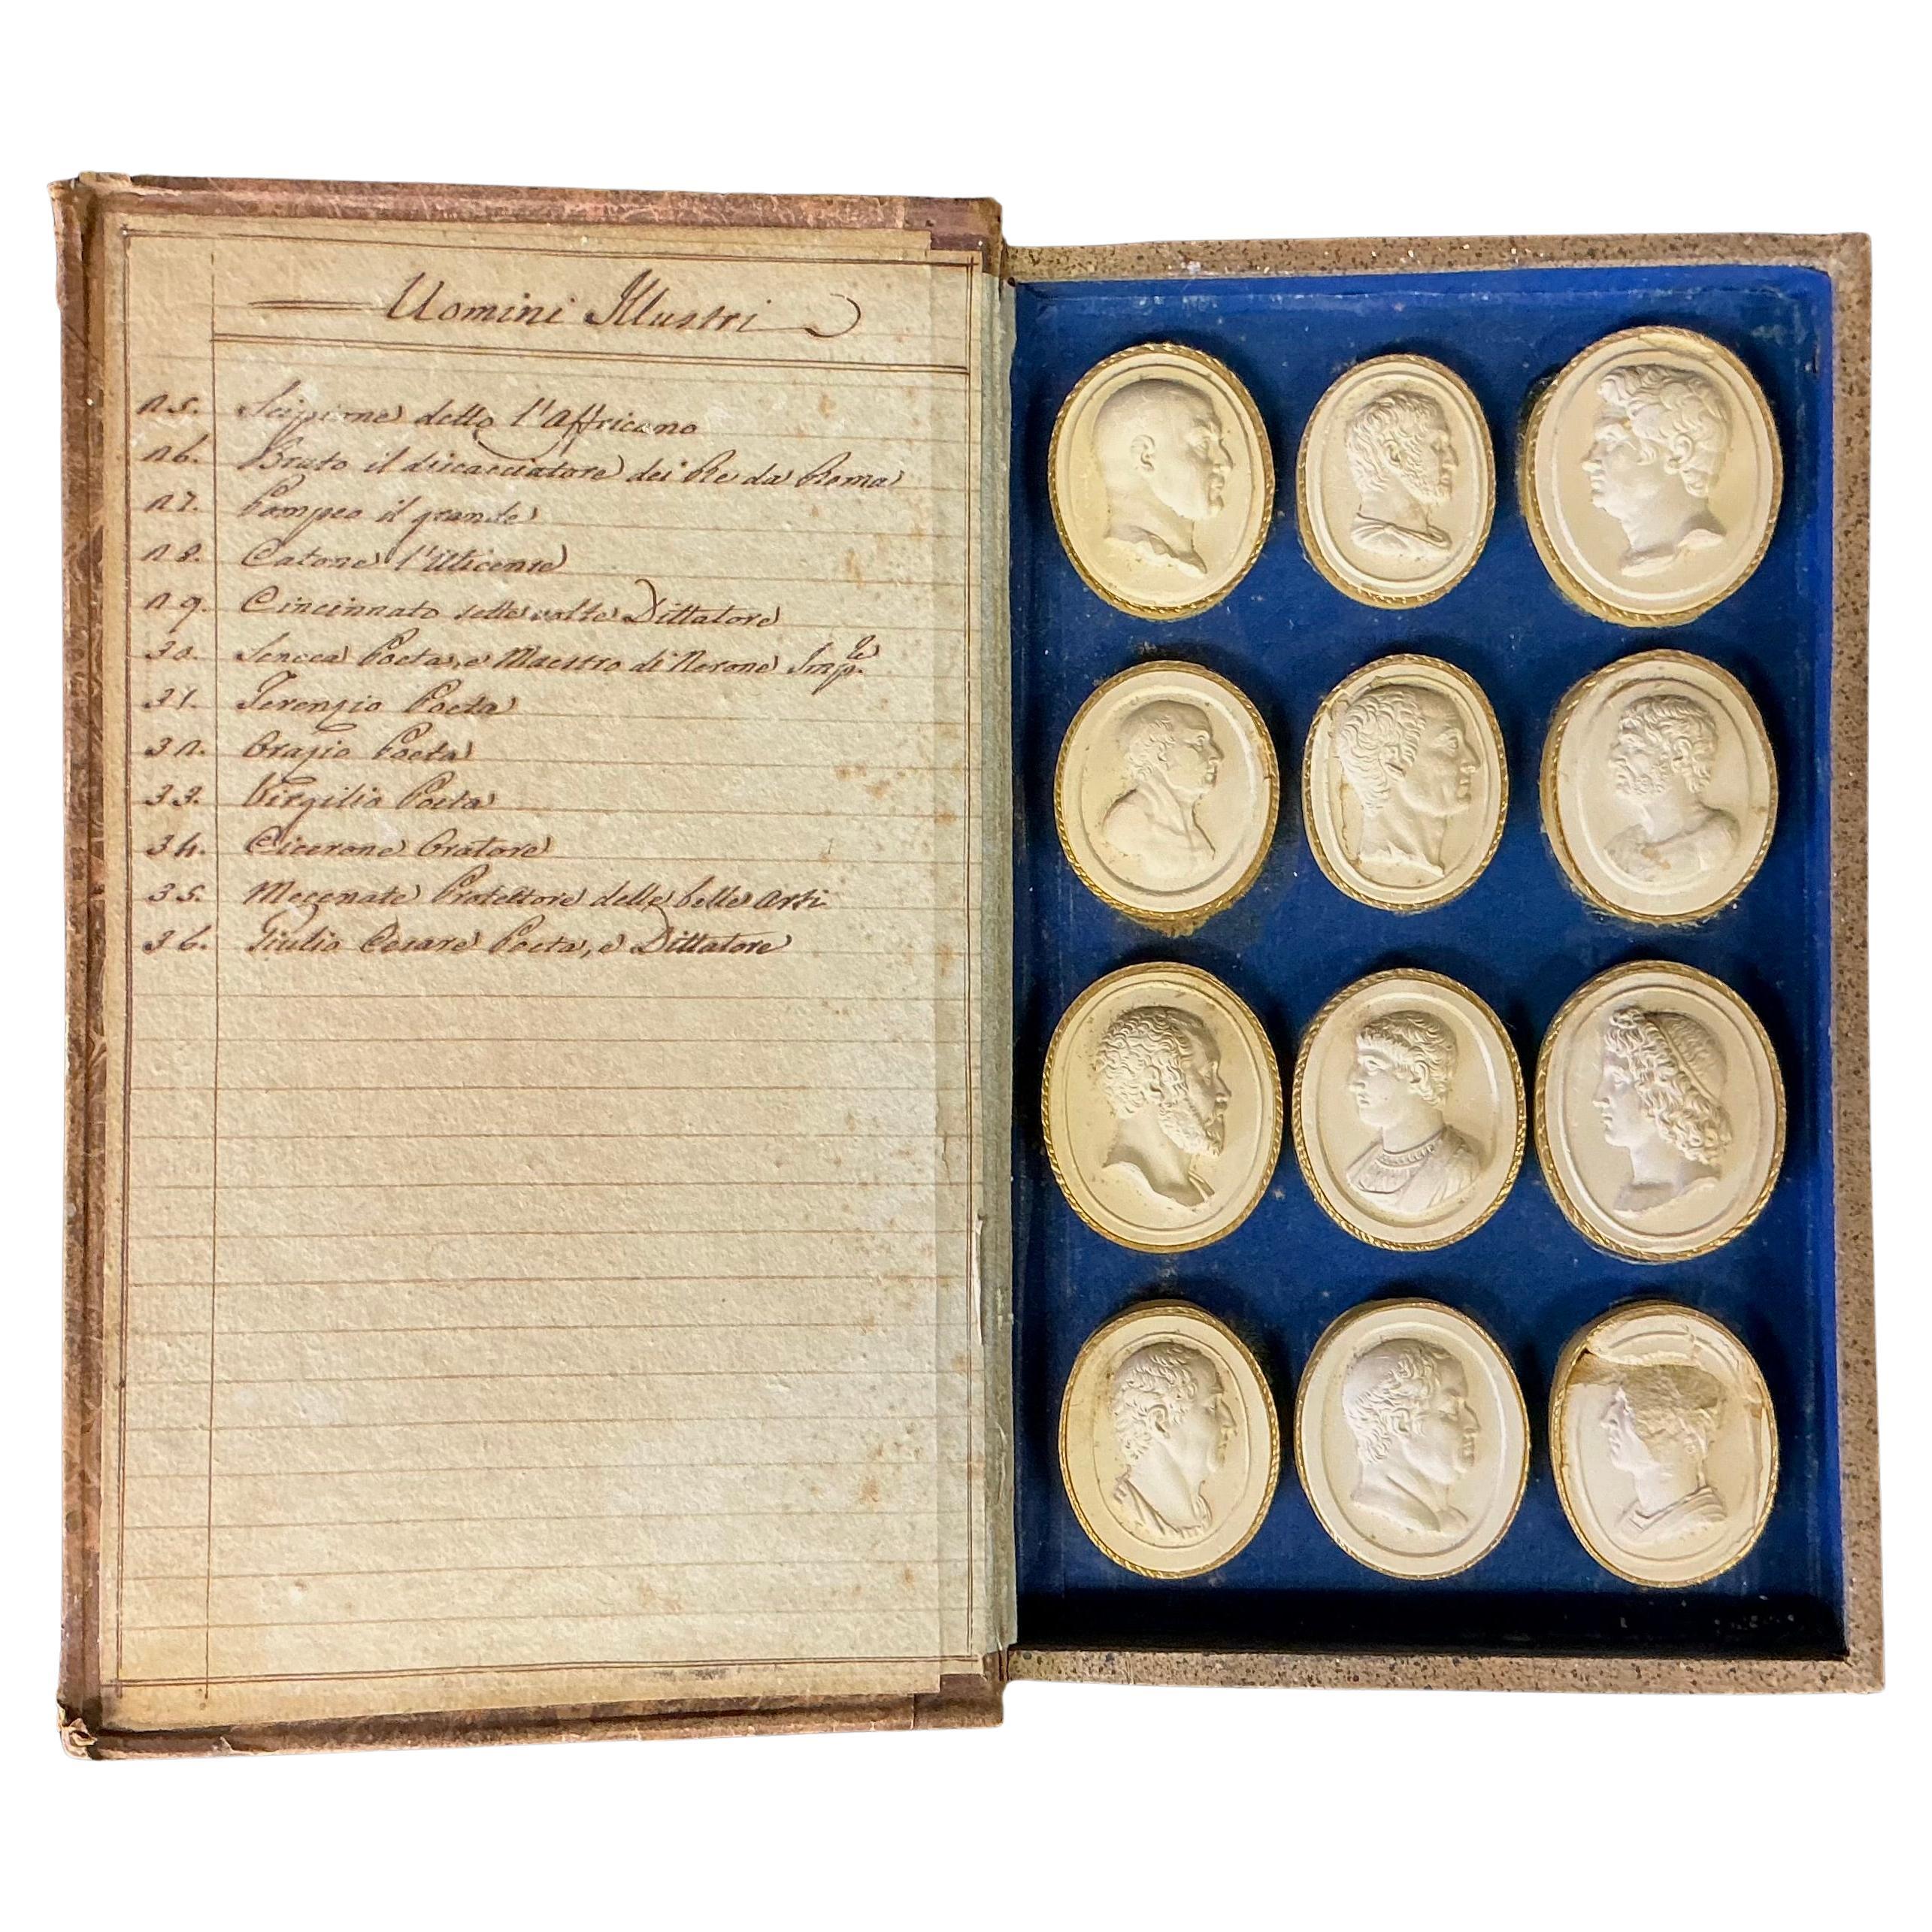 Uomini Illustri
25. Scipione detto l'Affricano
26. Bruto il discacciatore dei Re da Roma
27. Pompeo il grande
28. Catone l'Uticense
29. Cincinnato sette volte Dittatore
30. Seneca Poeta, e Maestro di Nerone Imp.e
31. Terenzio Poeta
32. Orazio Poeta
33. Virgilio Poeta
34. Cicerone Oratore
35. Mecenate Protettore delle belle Arti
36. Giulio Cesare Poeta, e Dittatore